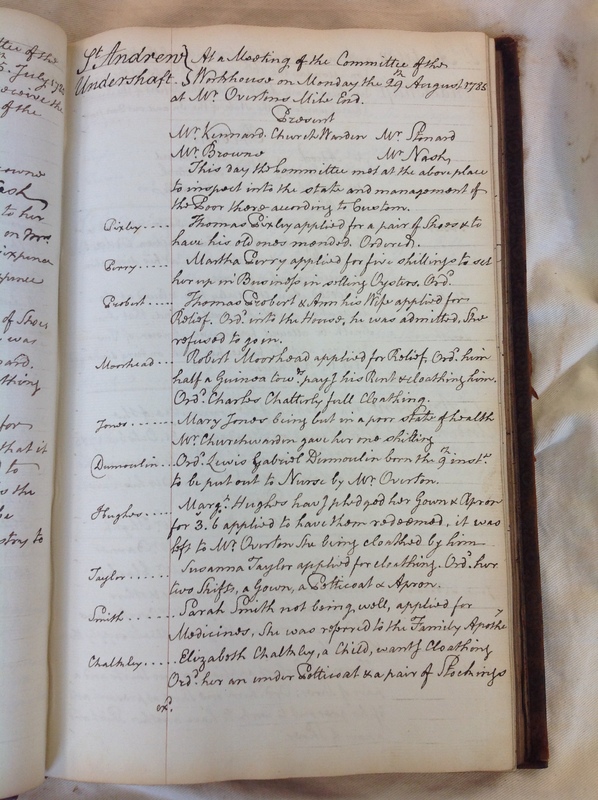 ttee of the
5. July 178
receive the
of the
rowne
ash
to her
on Mrs.
ixpence
xpence
of Shoes
was
ard.
athing
for
that it
d to
s the
be
stry to
St. Andrew At a Meeting of the Committee of the
Undershaft Workhouse on Monday the 29th August 1785
at Mr. Overtons Mile End.
Present
Mr. Kennard Church Warden Mr. Stonard
Mr. Browne Mr. Nash
This day the Committee met at the above place
to inspect into the state and management of
the Poor there according to Custom.
Pixley..... Thomas Pixley applied for a pair of Shoes & to
have his old ones mended. Ordered.
Perry..... Martha Perry applied for five shillings to set
her up in Business in selling Oysters. Ord.
Probert..... Thomas Probert & Ann his Wife applied for
Relief. Ord. into the House, he was admitted. She
refused to go in.
Moorhead.... Robert Moorhead applied for Relief. Ord. him
half a Guinea tow. pays his Rent & cloathing him.
Ord. Charles Chatterly full Cloathing.
Jones........ Mary Jones being but in a poor state of health
Mr. Churchwarden gave her one shilling
Dumoulin... Ord. Lewis Gabriel Dumoulin born the 9th inst.
to be put out to Nurse by Mr. Overton.
Hughes..... Marg. Hughes hav.g pledged her Gown & Apron
for 3.6 applied to have them redeemed, it was
left to Mr. Overton She being cloathed by him
Taylor...... Susanna Taylor applied for cloathing. Ord. her
two Shifts, a Gown, a Petticoat & Apron.
Smith...... Sarah Smith not being well, applied for
Medicines, She was referred to the Family Apothy
Chalkley.... Elizabeth Chalkley, a Child, wants Cloathing
Ord. her an under Petticoat & a pair of Stockings
exd.